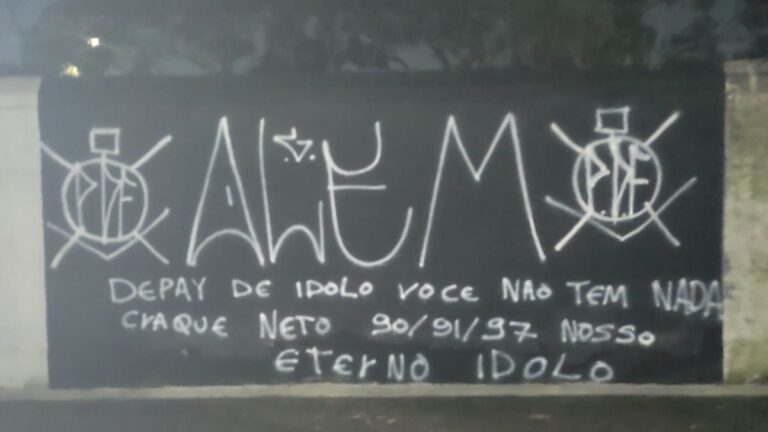 PDF ALEM PDF
DEPAY DE IDOLO VOCE NAO TEM NADA
CRAQUE NETO 90/91/97 NOSSO
ETERNO IDOLO